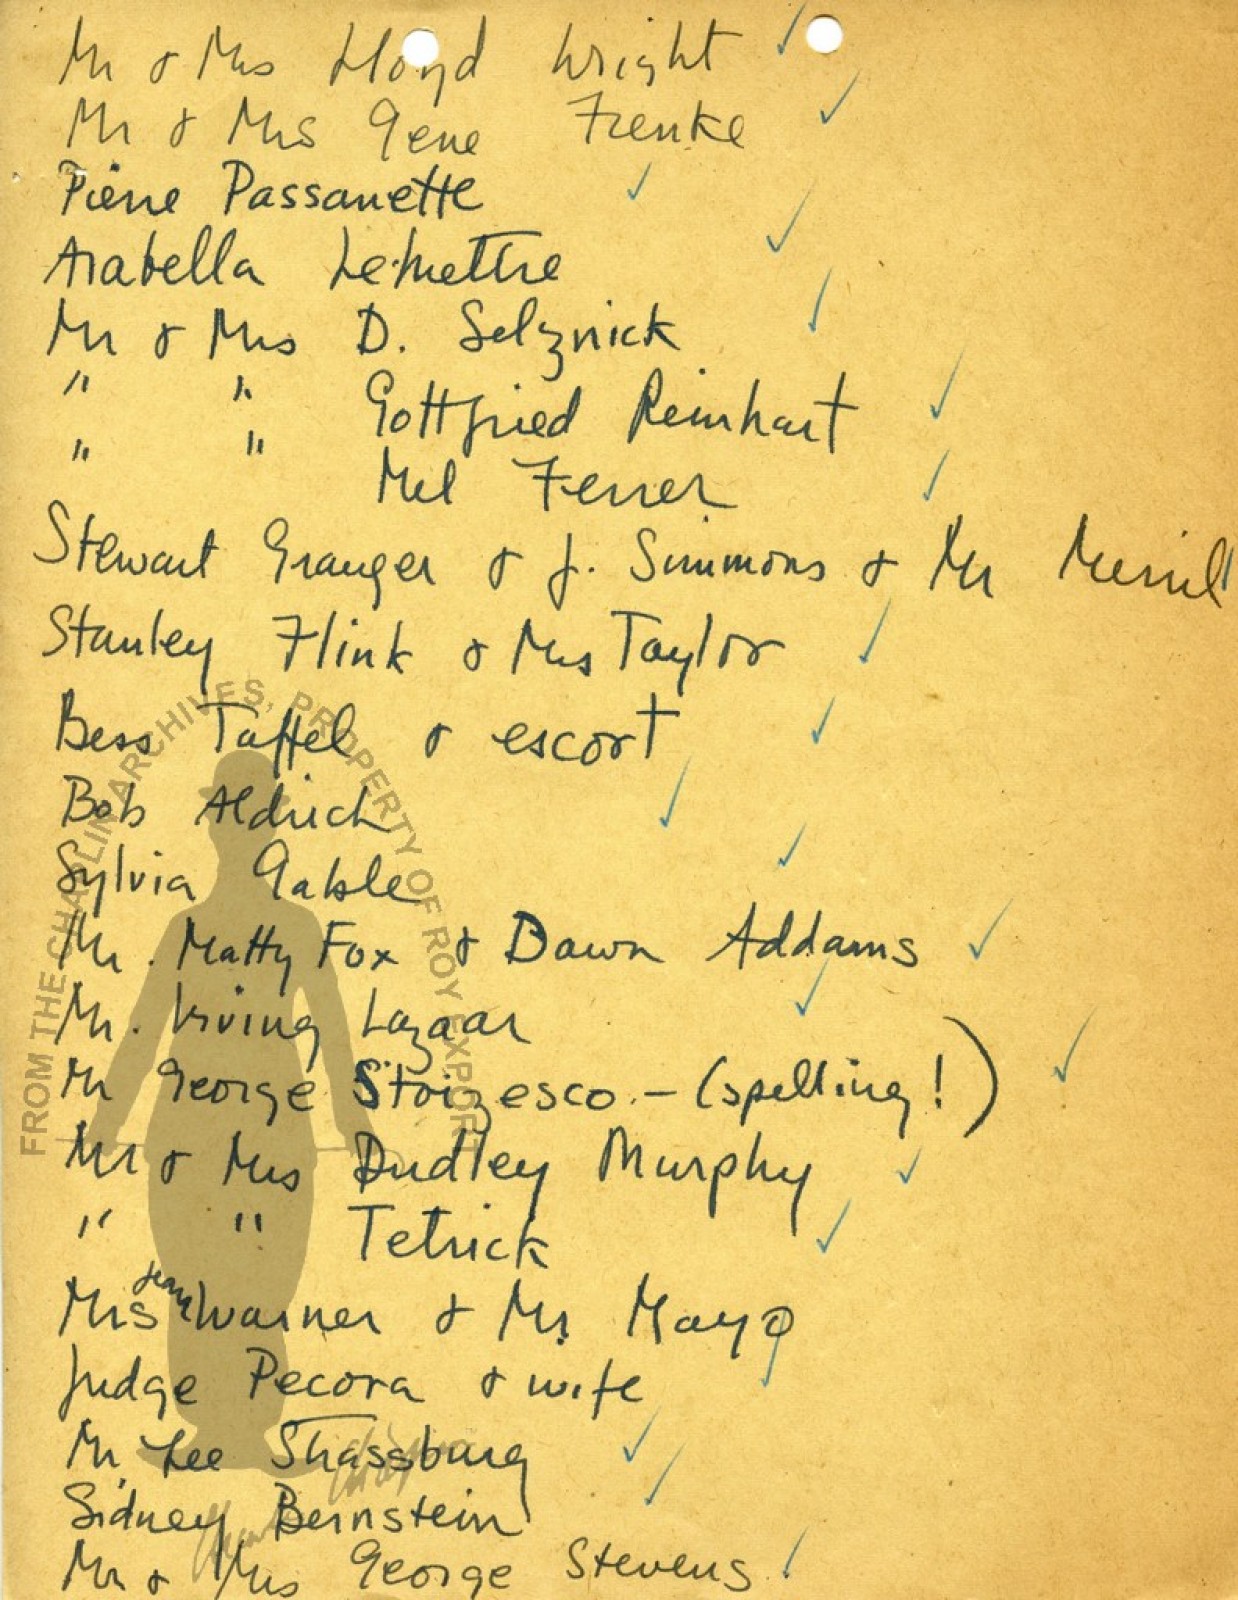 Mr & Mrs Lloyd Wright
Mr & Mrs Gene Frenke
Pierre Passanette
Arabella LeMettre
Mr & Mrs D. Selznick
" " Gottfried Reinhart
" " Mel Ferrer
Stewart Granger & J. Simmons & Mr Merrill
Stanley Flink & Mrs Taylor
Bess Taffel & escort
Bob Aldrich
Sylvia Gable
Mr. Matty Fox & Dawn Addams
Mr. Irving Lazaar
Mr George Stoizesco - (spelling!)
Mr & Mrs Dudley Murphy
" " Tetrick
Mrs Jean Warner & Mr Mayo
Judge Pecora & wife
Mr Lee Strassburg
Sidney Bernstein
Mr & Mrs George Stevens
FROM THE CHAPLIN ARCHIVES, PROPERTY OF ROY EXPORT